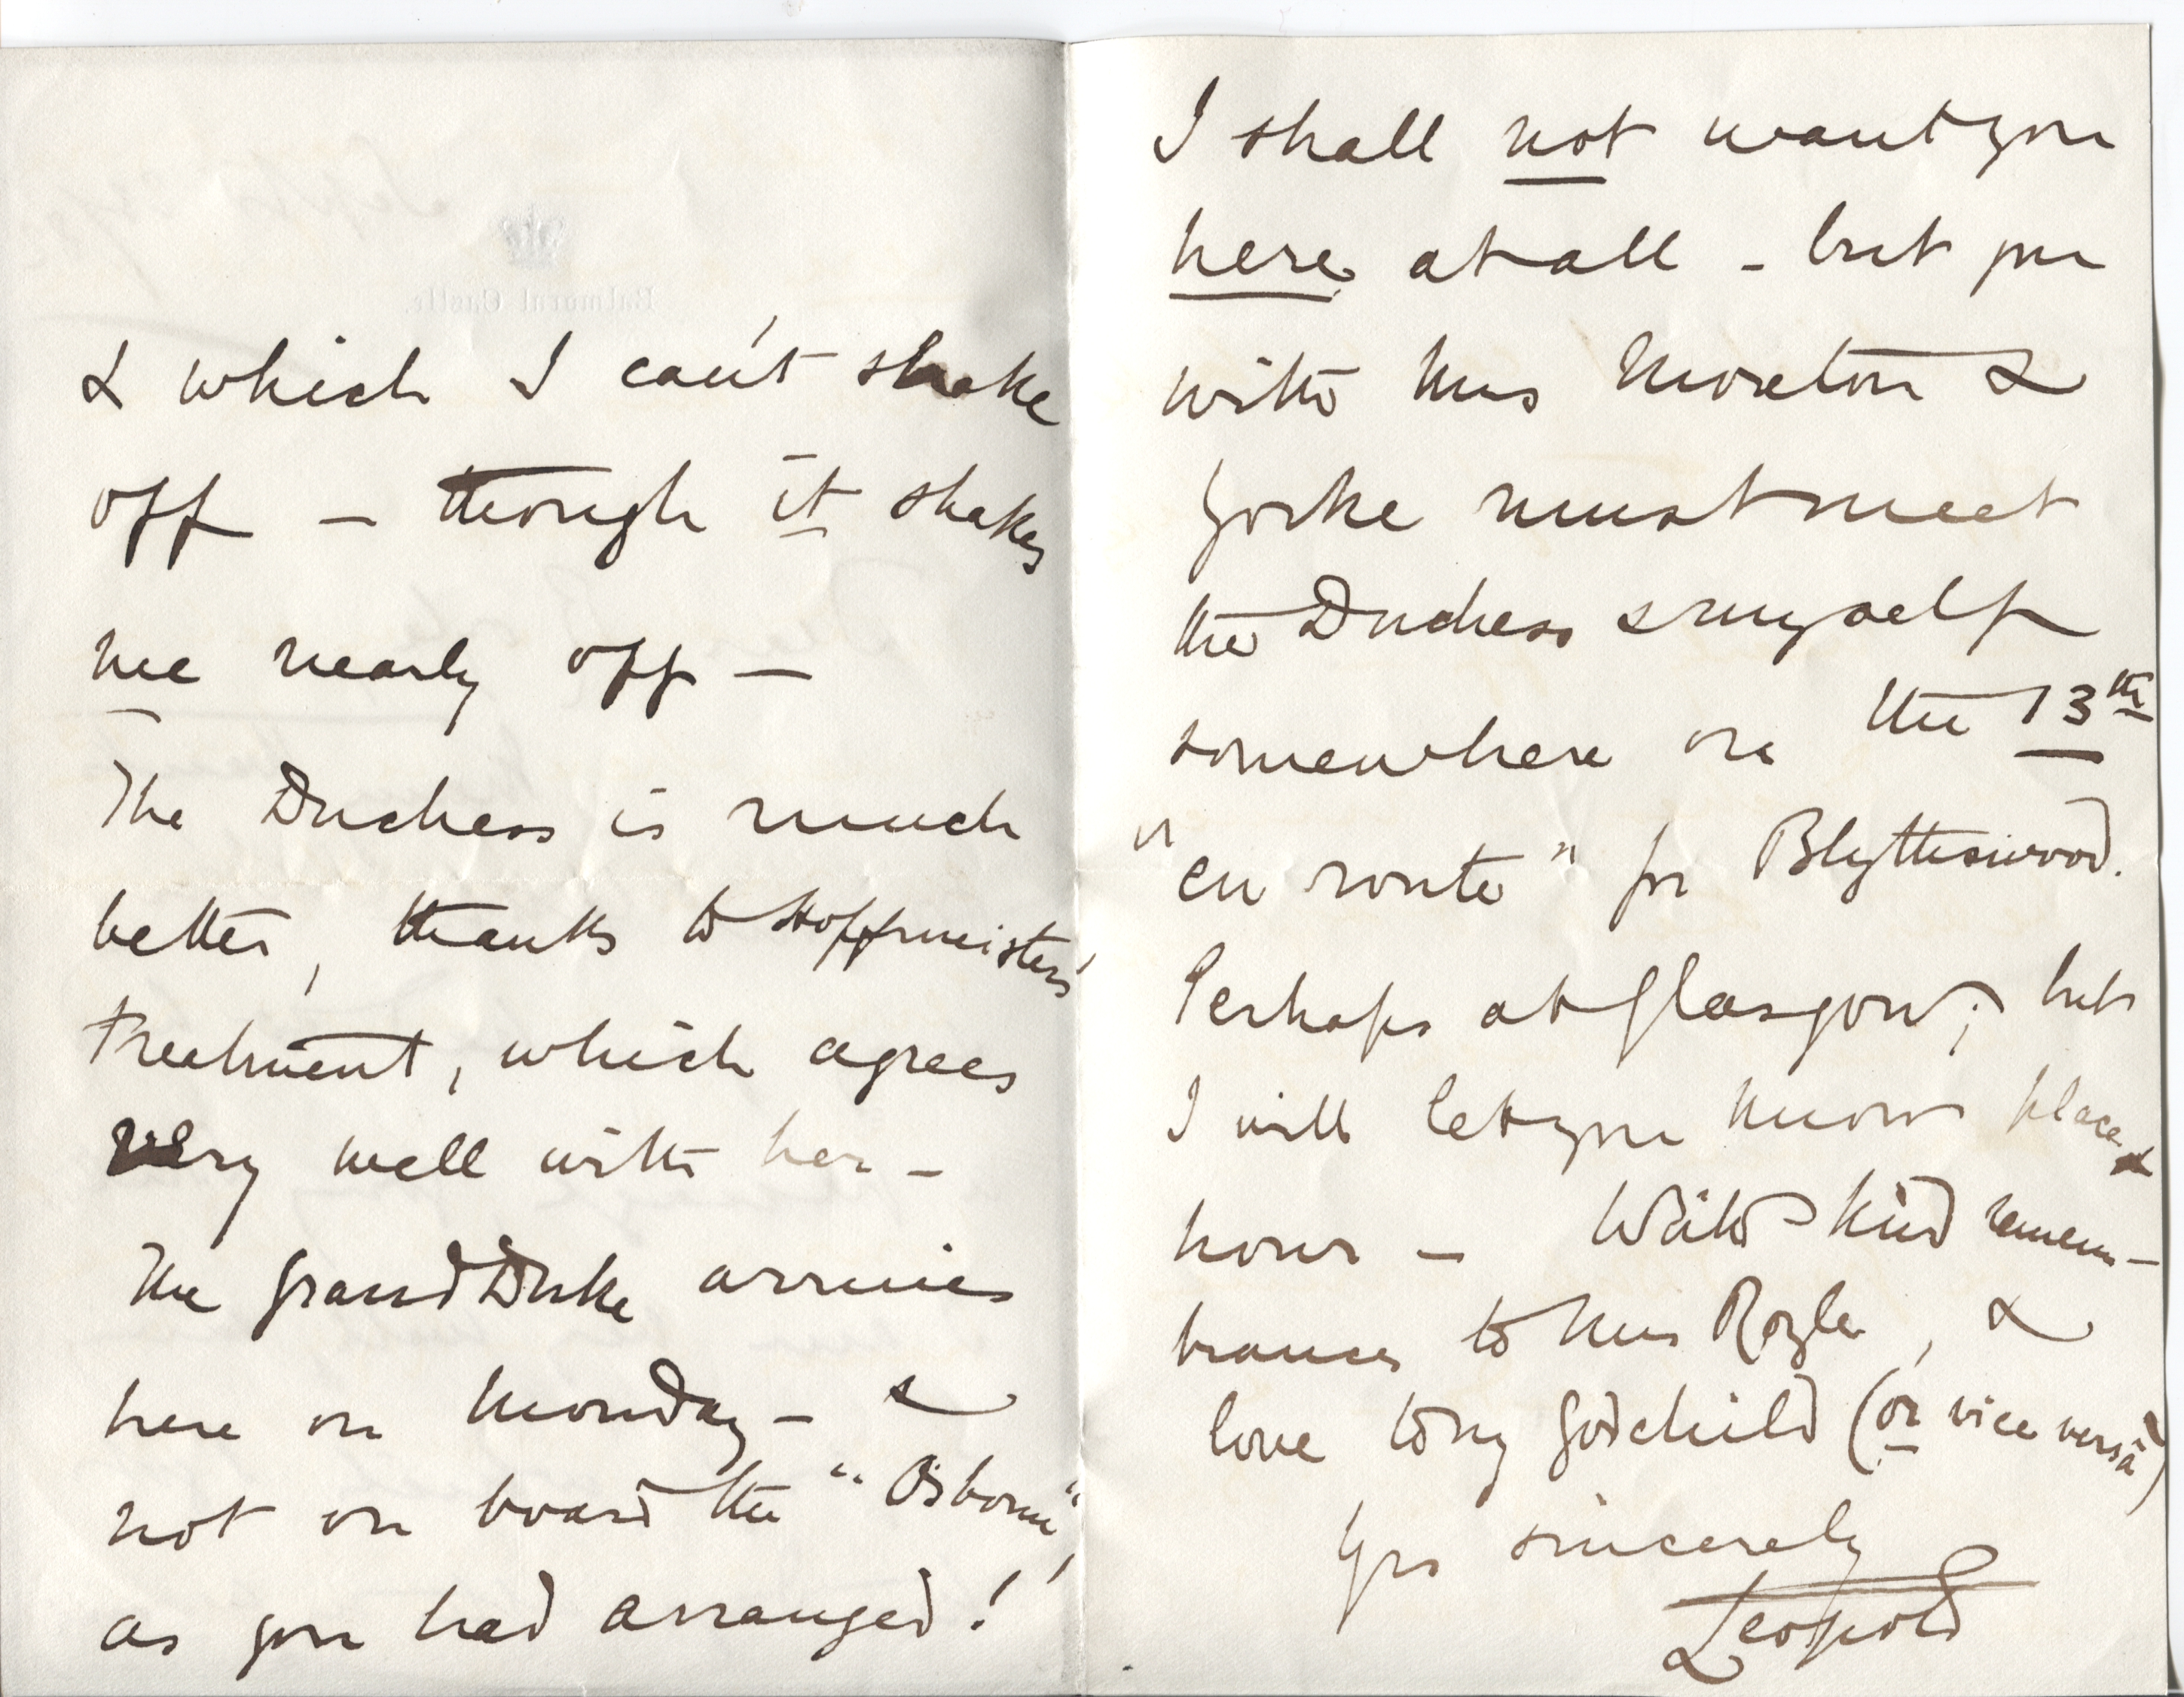 & which I can't shake
off — though it shakes
me nearly off —
The Duchess is much
better, thanks to Hoffmeister's
treatment, which agrees
very well with her —
The Grand Duke arrives
here on Monday — &
not on board the "Osborne",
as you had arranged!
I shall not want you
here at all — but you
with Mrs Moreton &
Yorke must meet
the Duchess & myself
somewhere on the 13th
"en route" for Blythswood.
Perhaps at Glasgow; but
I will let you know place &
hour — With kind remem-
brances to Mrs Royle, &
love to my godchild (or vice versâ)
Yrs sincerely
Leopold
Balmoral Castle.